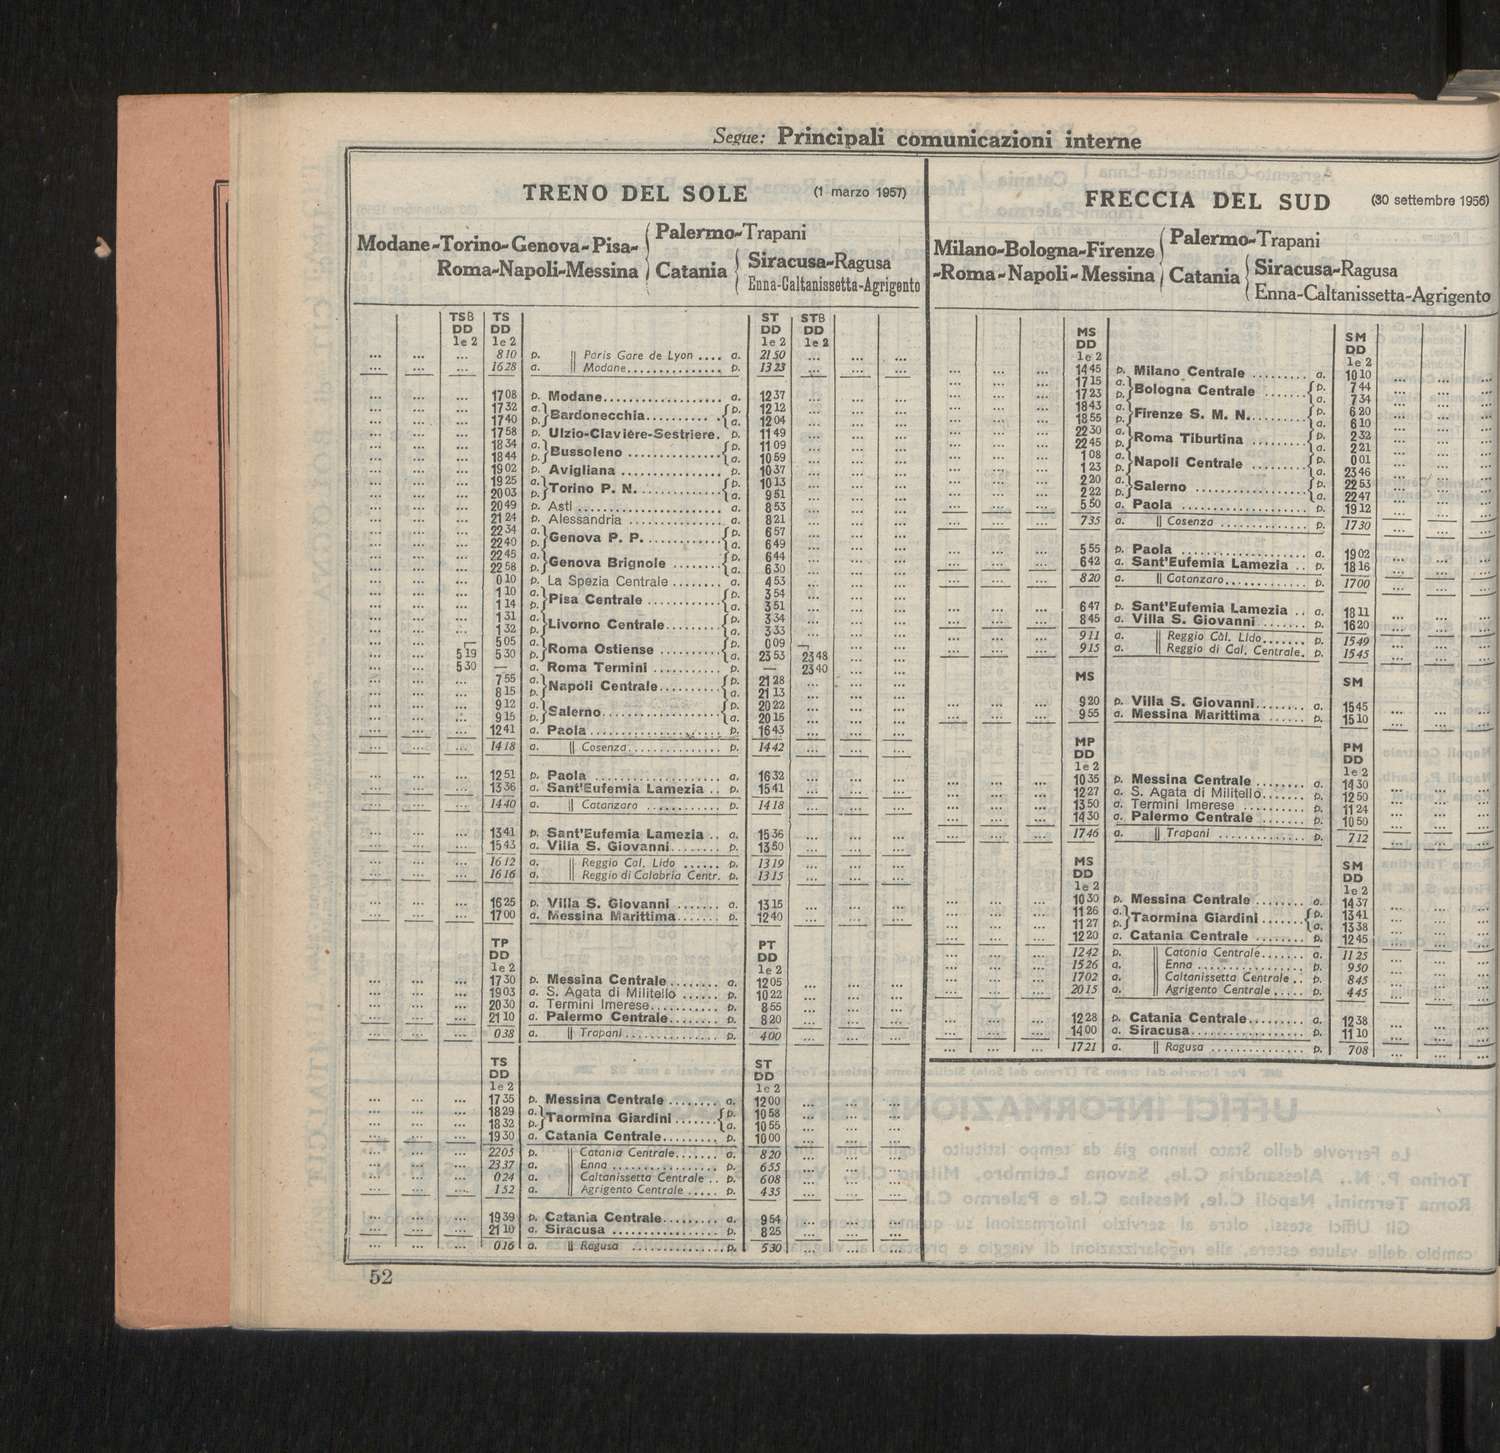 Segue: Principali comunicazioni interne
TRENO DEL SOLE (1 marzo 1957)
Modane-Torino-Genova-Pisa-Roma-Napoli-Messina
Palermo-Trapani
Catania
Siracusa-Ragusa
Enna-Caltanissetta-Agrigento
TSB TS ST STB
DD DD DD DD
1e2 1e2 1e2 1e2
... ... ... 8 10 p. || Paris Gare de Lyon .... a. 21 50 ... ... ...
... ... ... 16 28 a. || Modane ............... p. 13 23 ... ... ...
... ... ... 17 08 p. Modane .................. a. 12 37 ... ... ...
... ... ... 17 32 a. Bardonecchia .......... p. 12 12 ... ... ...
... ... ... 17 40 p. a. 12 04 ... ... ...
... ... ... 17 58 p. Ulzio-Clavière-Sestriere. p. 11 49 ... ... ...
... ... ... 18 34 a. Bussoleno ............... p. 11 09 ... ... ...
... ... ... 18 44 p. a. 10 59 ... ... ...
... ... ... 19 02 p. Avigliana ............... p. 10 37 ... ... ...
... ... ... 19 25 a. Torino P. N. ............. p. 10 13 ... ... ...
... ... ... 20 03 p. a. 9 51 ... ... ...
... ... ... 20 49 p. Asti ...................... a. 8 53 ... ... ...
... ... ... 21 24 p. Alessandria .............. a. 8 21 ... ... ...
... ... ... 22 34 a. Genova P. P. ............ p. 6 57 ... ... ...
... ... ... 22 40 p. a. 6 49 ... ... ...
... ... ... 22 45 a. Genova Brignole ........ p. 6 44 ... ... ...
... ... ... 22 58 p. a. 6 30 ... ... ...
... ... ... 0 10 p. La Spezia Centrale ........ a. 4 53 ... ... ...
... ... ... 1 10 a. Pisa Centrale ............ p. 3 54 ... ... ...
... ... ... 1 14 p. a. 3 51 ... ... ...
... ... ... 1 31 a. Livorno Centrale ......... p. 3 34 ... ... ...
... ... ... 1 32 p. a. 3 33 ... ... ...
... ... 5 05 a. Roma Ostiense .......... p. 0 09 ... ...
... ... 5 19 5 30 p. a. 23 53 23 48 ... ...
... ... 5 30 — a. Roma Termini ........... p. — 23 40 ... ...
... ... ... 7 55 a. Napoli Centrale .......... p. 21 28 ... ... ...
... ... ... 8 15 p. a. 21 13 ... ... ...
... ... ... 9 12 a. Salerno .................. p. 20 22 ... ... ...
... ... ... 9 15 p. a. 20 15 ... ... ...
... ... ... 12 41 a. Paola ................... p. 16 43 ... ... ...
... ... ... 14 18 a. || Cosenza .............. p. 14 42 ... ... ...
... ... ... 12 51 p. Paola ................... a. 16 32 ... ... ...
... ... ... 13 36 a. Sant'Eufemia Lamezia .. p. 15 41 ... ... ...
... ... ... 14 40 a. || Catanzaro ............ p. 14 18 ... ... ...
... ... ... 13 41 p. Sant'Eufemia Lamezia .. a. 15 36 ... ... ...
... ... ... 15 43 a. Villa S. Giovanni ........ p. 13 50 ... ... ...
... ... ... 16 12 a. || Reggio Cal. Lido ...... p. 13 19 ... ... ...
... ... ... 16 16 a. || Reggio di Calabria Centr. p. 13 15 ... ... ...
... ... ... 16 25 p. Villa S. Giovanni ....... a. 13 15 ... ... ...
... ... ... 17 00 a. Messina Marittima ....... p. 12 40 ... ... ...
TP PT
DD DD
1e2 1e2
... ... ... 17 30 p. Messina Centrale ........ a. 12 05 ... ... ...
... ... ... 19 03 a. S. Agata di Militello ...... p. 10 22 ... ... ...
... ... ... 20 30 a. Termini Imerese ........... p. 8 55 ... ... ...
... ... ... 21 10 a. Palermo Centrale ........ p. 8 20 ... ... ...
... ... ... 0 38 a. || Trapani ............... p. 4 00 ... ... ...
TS ST
DD DD
1e2 1e2
... ... ... 17 35 p. Messina Centrale ........ a. 12 00 ... ... ...
... ... ... 18 29 a. Taormina Giardini ....... p. 10 58 ... ... ...
... ... ... 18 32 p. a. 10 55 ... ... ...
... ... ... 19 30 a. Catania Centrale ......... p. 10 00 ... ... ...
... ... ... 22 05 p. || Catania Centrale ....... a. 8 20 ... ... ...
... ... ... 23 37 a. || Enna ................ p. 6 55 ... ... ...
... ... ... 0 24 a. || Caltanissetta Centrale .. p. 6 08 ... ... ...
... ... ... 1 52 a. || Agrigento Centrale ..... p. 4 35 ... ... ...
... ... ... 19 39 p. Catania Centrale ......... a. 9 54 ... ... ...
... ... ... 21 10 a. Siracusa ................ p. 8 25 ... ... ...
... ... ... 0 16 a. || Ragusa .............. p. 5 30 ... ... ...
52
FRECCIA DEL SUD (30 settembre 1956)
Milano-Bologna-Firenze-Roma-Napoli-Messina
Palermo-Trapani
Catania
Siracusa-Ragusa
Enna-Caltanissetta-Agrigento
MS SM
DD DD
1e2 1e2
... ... ... 14 45 p. Milano Centrale ......... a. 10 10 ... ... ...
... ... ... 17 15 a. Bologna Centrale ....... p. 7 44 ... ... ...
... ... ... 17 23 p. a. 7 34 ... ... ...
... ... ... 18 43 a. Firenze S. M. N. ........ p. 6 20 ... ... ...
... ... ... 18 55 p. a. 6 10 ... ... ...
... ... ... 22 30 a. Roma Tiburtina ......... p. 2 32 ... ... ...
... ... ... 22 45 p. a. 2 21 ... ... ...
... ... ... 1 08 a. Napoli Centrale ......... p. 0 01 ... ... ...
... ... ... 1 23 p. a. 23 46 ... ... ...
... ... ... 2 20 a. Salerno ................. p. 22 53 ... ... ...
... ... ... 2 22 p. a. 22 47 ... ... ...
... ... ... 5 50 a. Paola ................... p. 19 12 ... ... ...
... ... ... 7 35 a. || Cosenza ............. p. 17 30 ... ... ...
... ... ... 5 55 p. Paola ................... a. 19 02 ... ... ...
... ... ... 6 42 a. Sant'Eufemia Lamezia .. p. 18 16 ... ... ...
... ... ... 8 20 a. || Catanzaro ............ p. 17 00 ... ... ...
... ... ... 6 47 p. Sant'Eufemia Lamezia .. a. 18 11 ... ... ...
... ... ... 8 45 a. Villa S. Giovanni ....... p. 16 20 ... ... ...
... ... ... 9 11 a. || Reggio Cal. Lido ....... p. 15 49 ... ... ...
... ... ... 9 15 a. || Reggio di Cal. Centrale. p. 15 45 ... ... ...
MS SM
... ... ... 9 20 p. Villa S. Giovanni ........ a. 15 45 ... ... ...
... ... ... 9 55 a. Messina Marittima ...... p. 15 10 ... ... ...
MP PM
DD DD
1e2 1e2
... ... ... 10 35 p. Messina Centrale ........ a. 14 30 ... ... ...
... ... ... 12 27 a. S. Agata di Militello ...... p. 12 50 ... ... ...
... ... ... 13 50 a. Termini Imerese .......... p. 11 24 ... ... ...
... ... ... 14 30 a. Palermo Centrale ....... p. 10 50 ... ... ...
... ... ... 17 46 a. || Trapani .............. p. 7 12 ... ... ...
MS SM
DD DD
1e2 1e2
... ... ... 10 30 p. Messina Centrale ........ a. 14 37 ... ... ...
... ... ... 11 26 a. Taormina Giardini ...... p. 13 41 ... ... ...
... ... ... 11 27 p. a. 13 38 ... ... ...
... ... ... 12 20 a. Catania Centrale ........ p. 12 45 ... ... ...
... ... ... 12 42 p. || Catania Centrale ....... a. 11 25 ... ... ...
... ... ... 15 26 a. || Enna ................. p. 9 50 ... ... ...
... ... ... 17 02 a. || Caltanissetta Centrale .. p. 8 45 ... ... ...
... ... ... 20 15 a. || Agrigento Centrale ..... p. 4 45 ... ... ...
... ... ... 12 28 p. Catania Centrale ......... a. 12 38 ... ... ...
... ... ... 14 00 a. Siracusa ................. p. 11 10 ... ... ...
... ... ... 17 21 a. || Ragusa ............... p. 7 08 ... ... ...